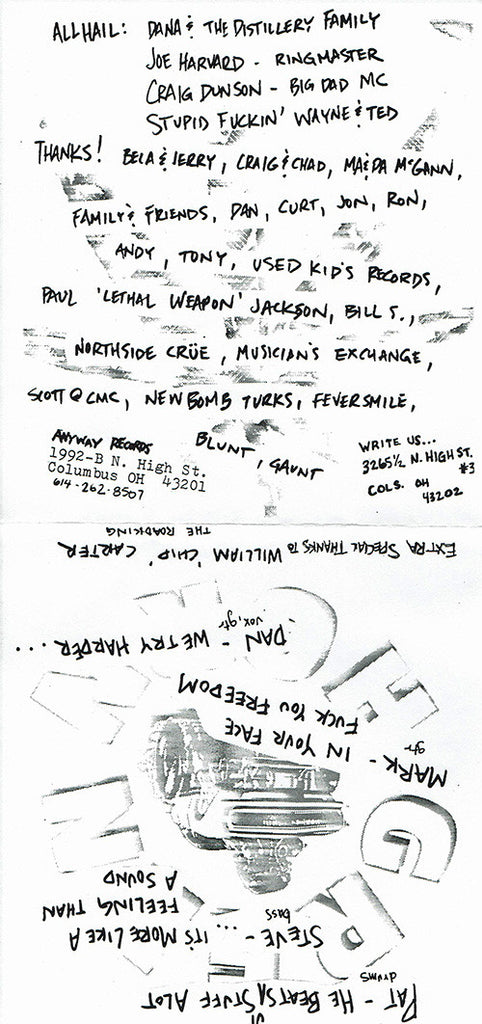 ALL HAIL: DANA & THE DISTILLERY FAMILY
JOE HARVARD - RINGMASTER
CRAIG DUNSON - BIG DAD MC
STUPID FUCKIN' WAYNE & TED
THANKS! BELA & JERRY, CRAIG & CHAD, MA & DA McGANN,
FAMILY & FRIENDS, DAN, CURT, JON, RON,
ANDY, TONY, USED KID'S RECORDS,
PAUL 'LETHAL WEAPON' JACKSON, BILL S.,
NORTHSIDE CRÜE, MUSICIAN'S EXCHANGE,
SCOTT @ CMC, NEW BOMB TURKS, FEVERSMILE,
BLUNT, GAUNT
ANYWAY RECORDS
1992-B N. High St.
Columbus OH 43201
614-262-8507
WRITE US...
3265½ N. HIGH ST.
#3
COLS. OH
43202
PAT - HE BEATS STUFF ALOT
drums
STEVE - ...IT'S MORE LIKE A
bass
FEELING THAN
A SOUND
MARK - IN YOUR FACE
gtr
FUCK YOU FREEDOM
DAN - WE TRY HARDER ...
vox, gtr
EXTRA SPECIAL THANKS TO WILLIAM 'CHIP' CARTER
THE ROADKING